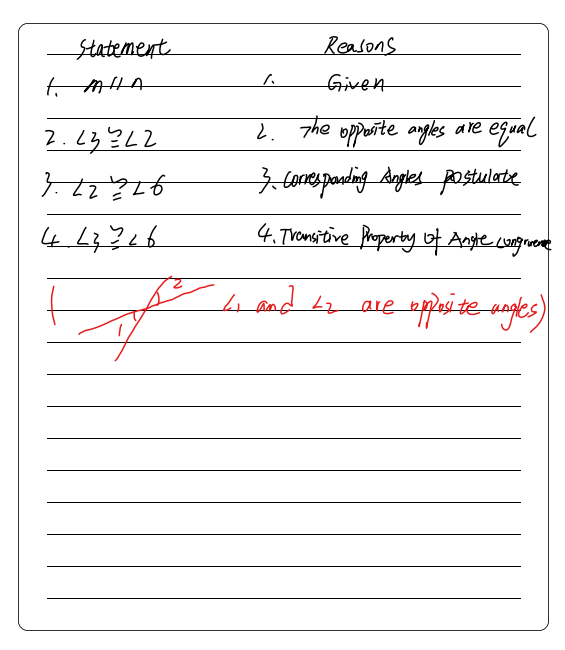 Statement Reasons
1. m // n 1. Given
2. ∠3 ≅ ∠2 2. The opposite angles are equal
3. ∠2 ≅ ∠6 3. Corresponding Angles Postulate
4. ∠3 ≅ ∠6 4. Transitive Property of Angle congruence
( 1 2 ∠1 and ∠2 are opposite angles)